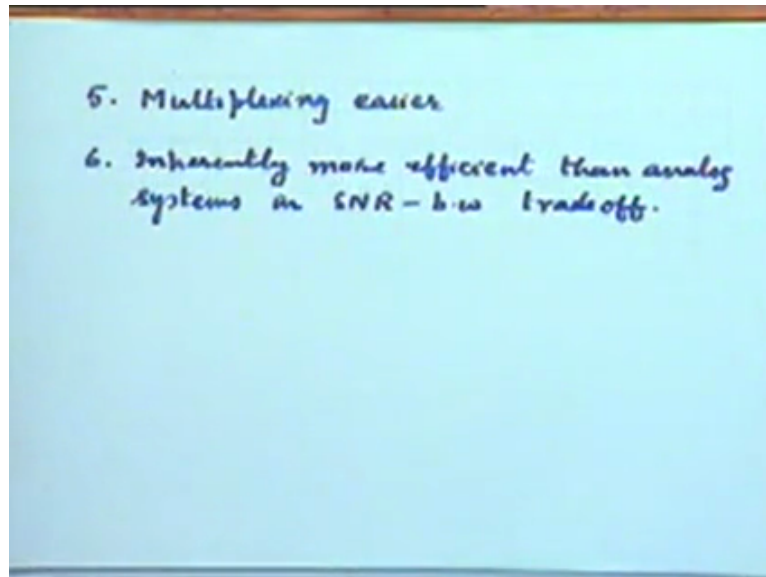 5. Multiplexing easier
6. Inherently more efficient than analog
systems in SNR - b.w tradeoff.